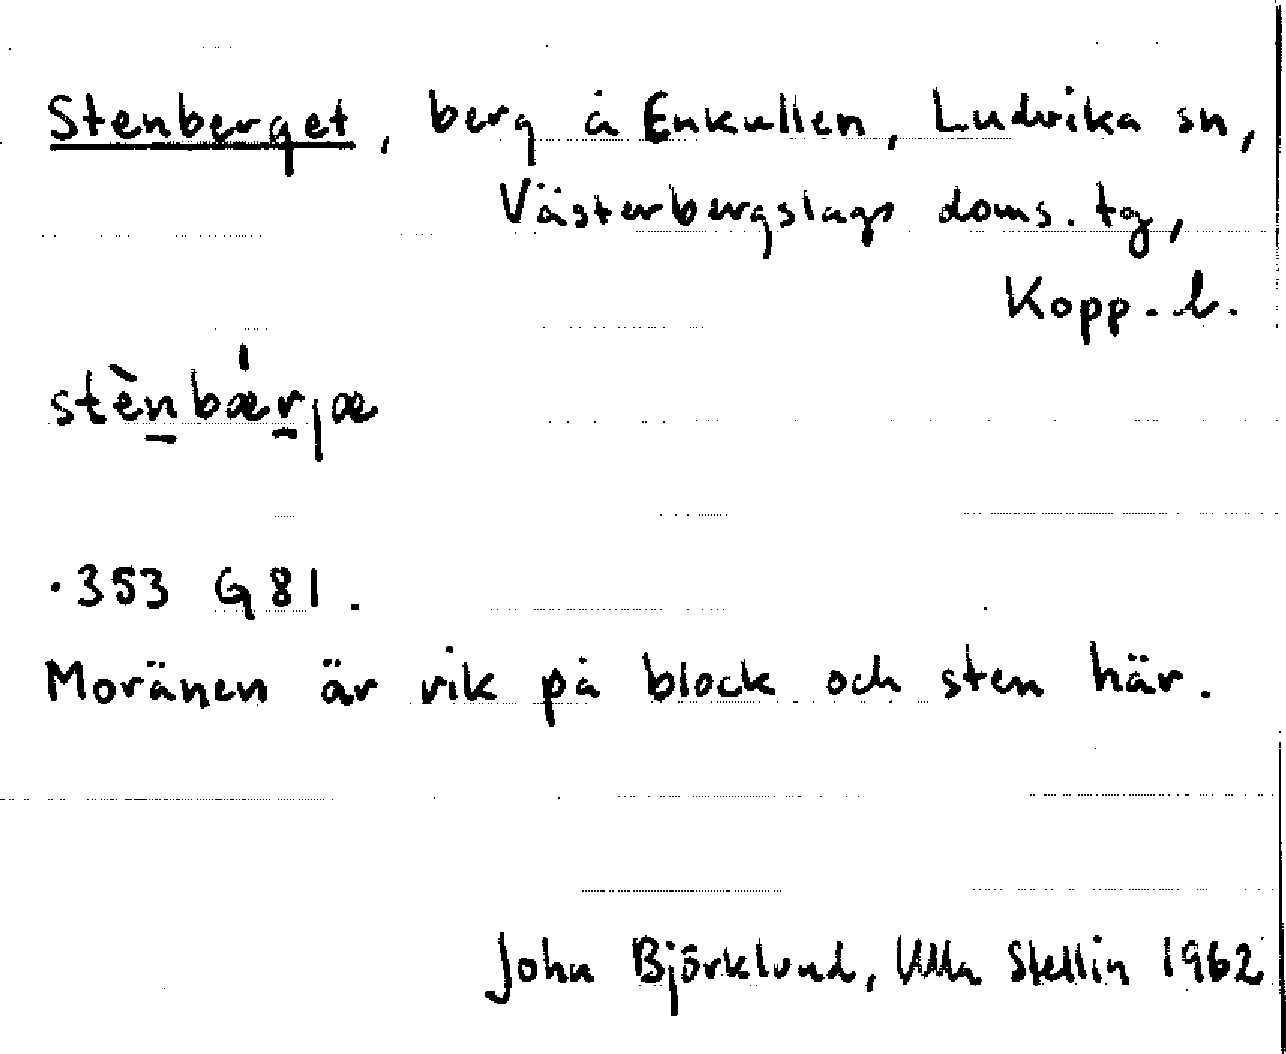 Stenberget, berg å Enkullen, Ludvika sn,
Västerbergslags doms. tg,
Kopp. l.
stèn̲bǽr̲jæ
·353 G 81.
Moränen är rik på block och sten här.
John Björklund, Ulla Stellin 1962